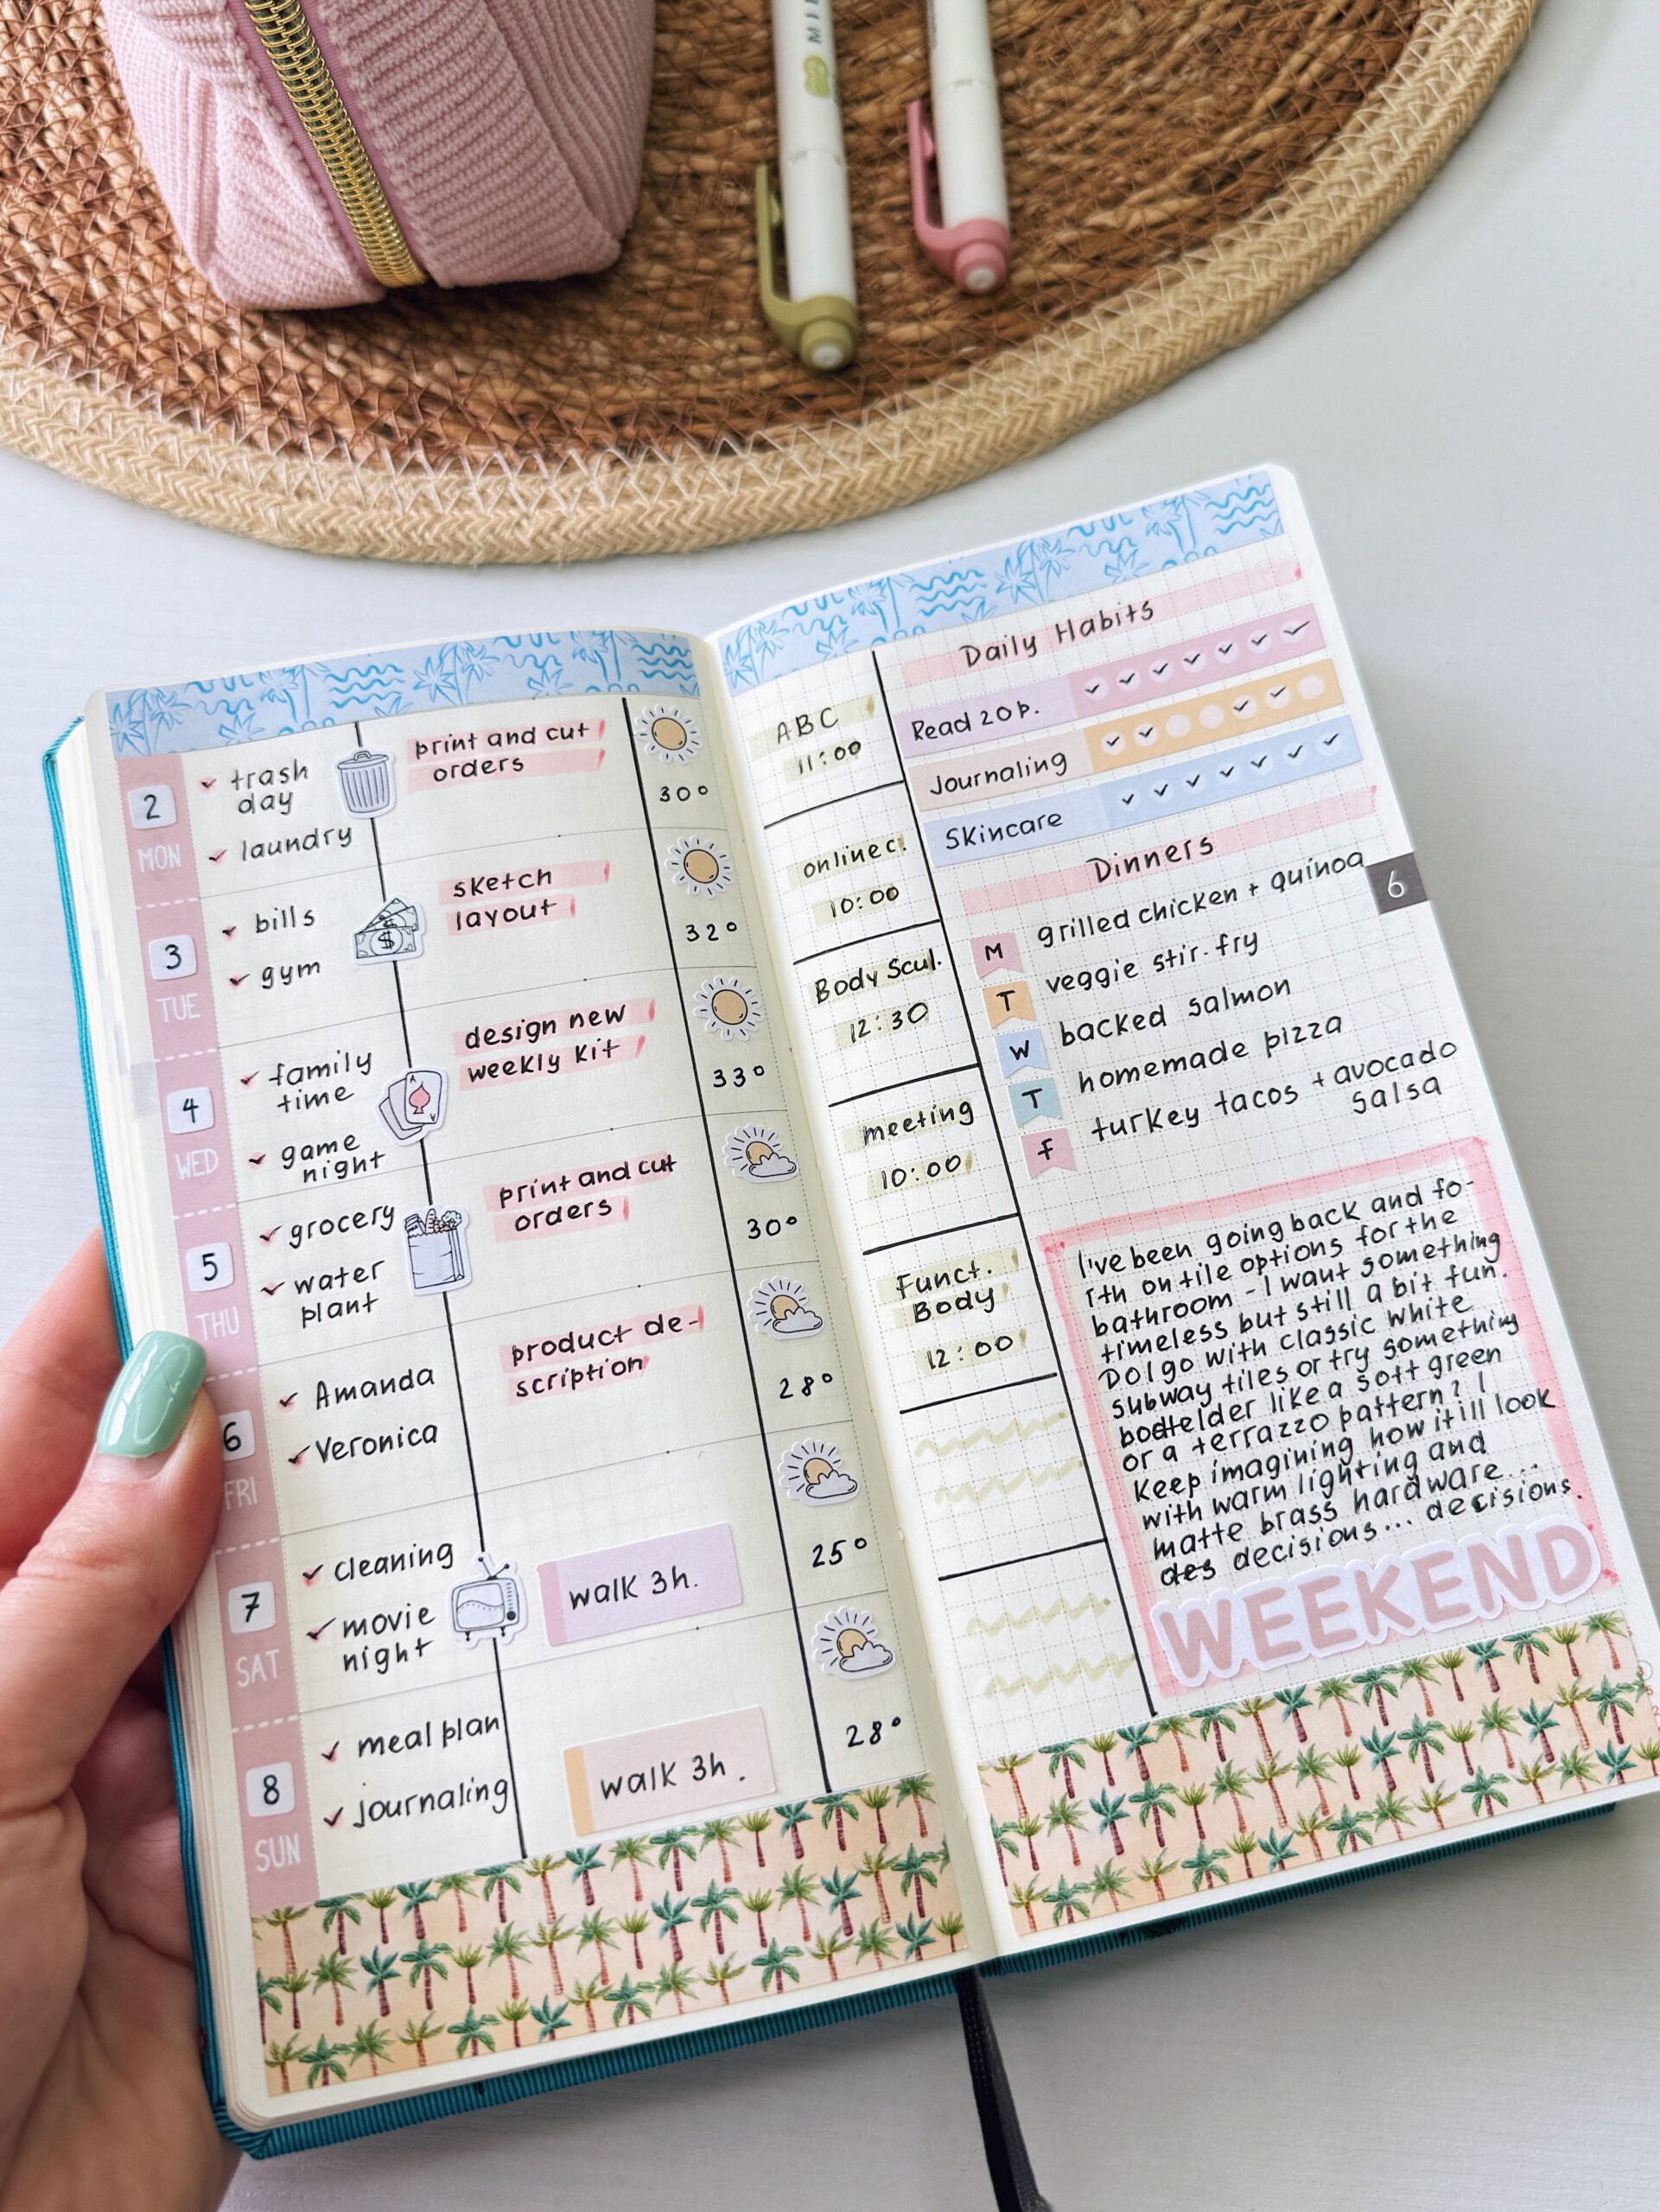 MIL
2
MON
trash
day
laundry
print and cut
orders
30°
3
TUE
bills
gym
$
sketch
layout
32°
4
WED
family
time
game
night
A
A
design new
weekly kit
33°
5
THU
grocery
water
plant
print and cut
orders
30°
6
FRI
Amanda
Veronica
product de-
scription
28°
7
SAT
cleaning
movie
night
walk 3h.
25°
8
SUN
meal plan
journaling
walk 3h.
28°
ABC
11:00
online c.
10:00
Body Scul.
12:30
meeting
10:00
Funct.
Body
12:00
Daily Habits
Read 20p.
Journaling
Skincare
Dinners
6
M grilled chicken + quinoa
T veggie stir-fry
W backed salmon
T homemade pizza
F turkey tacos + avocado
salsa
I've been going back and fo-
rth on tile options for the
bathroom - I want something
timeless but still a bit fun.
Do I go with classic white
subway tiles or try something
bodtelder like a soft green
or a terrazzo pattern? I
keep imagining how it ill look
with warm lighting and
matte brass hardware...
des decisions... decisions.
WEEKEND